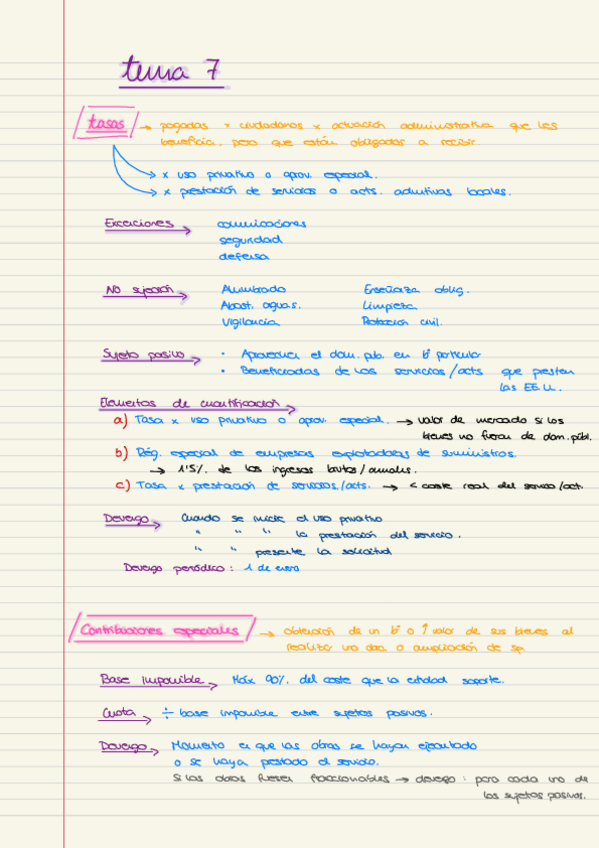 tema 7
tasas → pagadas x ciudadanos x actuación administrativa que les
beneficia, pero que están obligados a recibir
x uso privativo o aprov. especial.
x prestación de servicios o acts. admtivas locales.
Exenciones → comunicaciones
seguridad
defensa
No sujeción → Alumbrado Enseñanza oblig.
Abast. aguas. Limpieza
Vigilancia Protección civil.
Sujeto pasivo → • Aprovechan el dom. púb. en bº particular
• Beneficiadas de los servicios/acts que presten
las EE.LL.
Elementos de cuantificación
a) Tasa x uso privativo o aprov. especial. → valor de mercado si los
bienes no fueran de dom. públ.
b) Rég. especial de empresas explotadoras de suministros.
→ 1'5% de los ingresos brutos/anuales.
c) Tasa x prestación de servicios/acts. → < coste real del servicio/act.
Devengo → Cuando se inicie el uso privativo
" " " la prestación del servicio.
" " presente la solicitud
Devengo periódico: 1 de enero
Contribuciones especiales → obtención de un bº o ↑ valor de sus bienes al
realizar una obra o ampliación de sp.
Base imponible → Máx 90% del coste que la entidad soporte.
Cuota → ÷ base imponible entre sujetos pasivos.
Devengo → Momento en que las obras se hayan ejecutado
o se haya prestado el servicio.
Si las obras fueran fraccionables → devengo: para cada uno de
los sujetos pasivos.